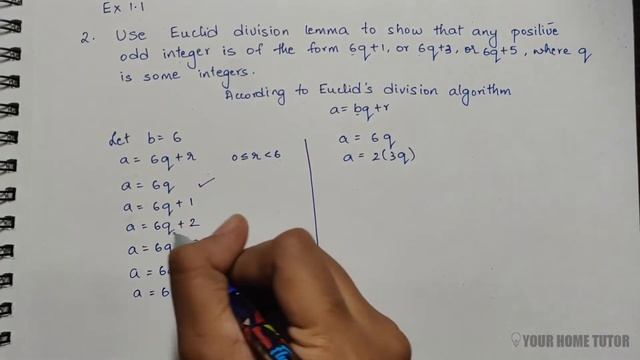 Ex 1.1
2. Use Euclid division lemma to show that any positive
odd integer is of the form 6q+1, or 6q+3, or 6q+5, where q
is some integers.
According to Euclid's division algorithm
a = bq + r
Let b = 6
a = 6q + r 0 ≤ r < 6
a = 6q ✓
a = 6q + 1
a = 6q + 2
a = 6q
a = 6
a = 6
a = 6q
a = 2(3q)
YOUR HOME TUTOR